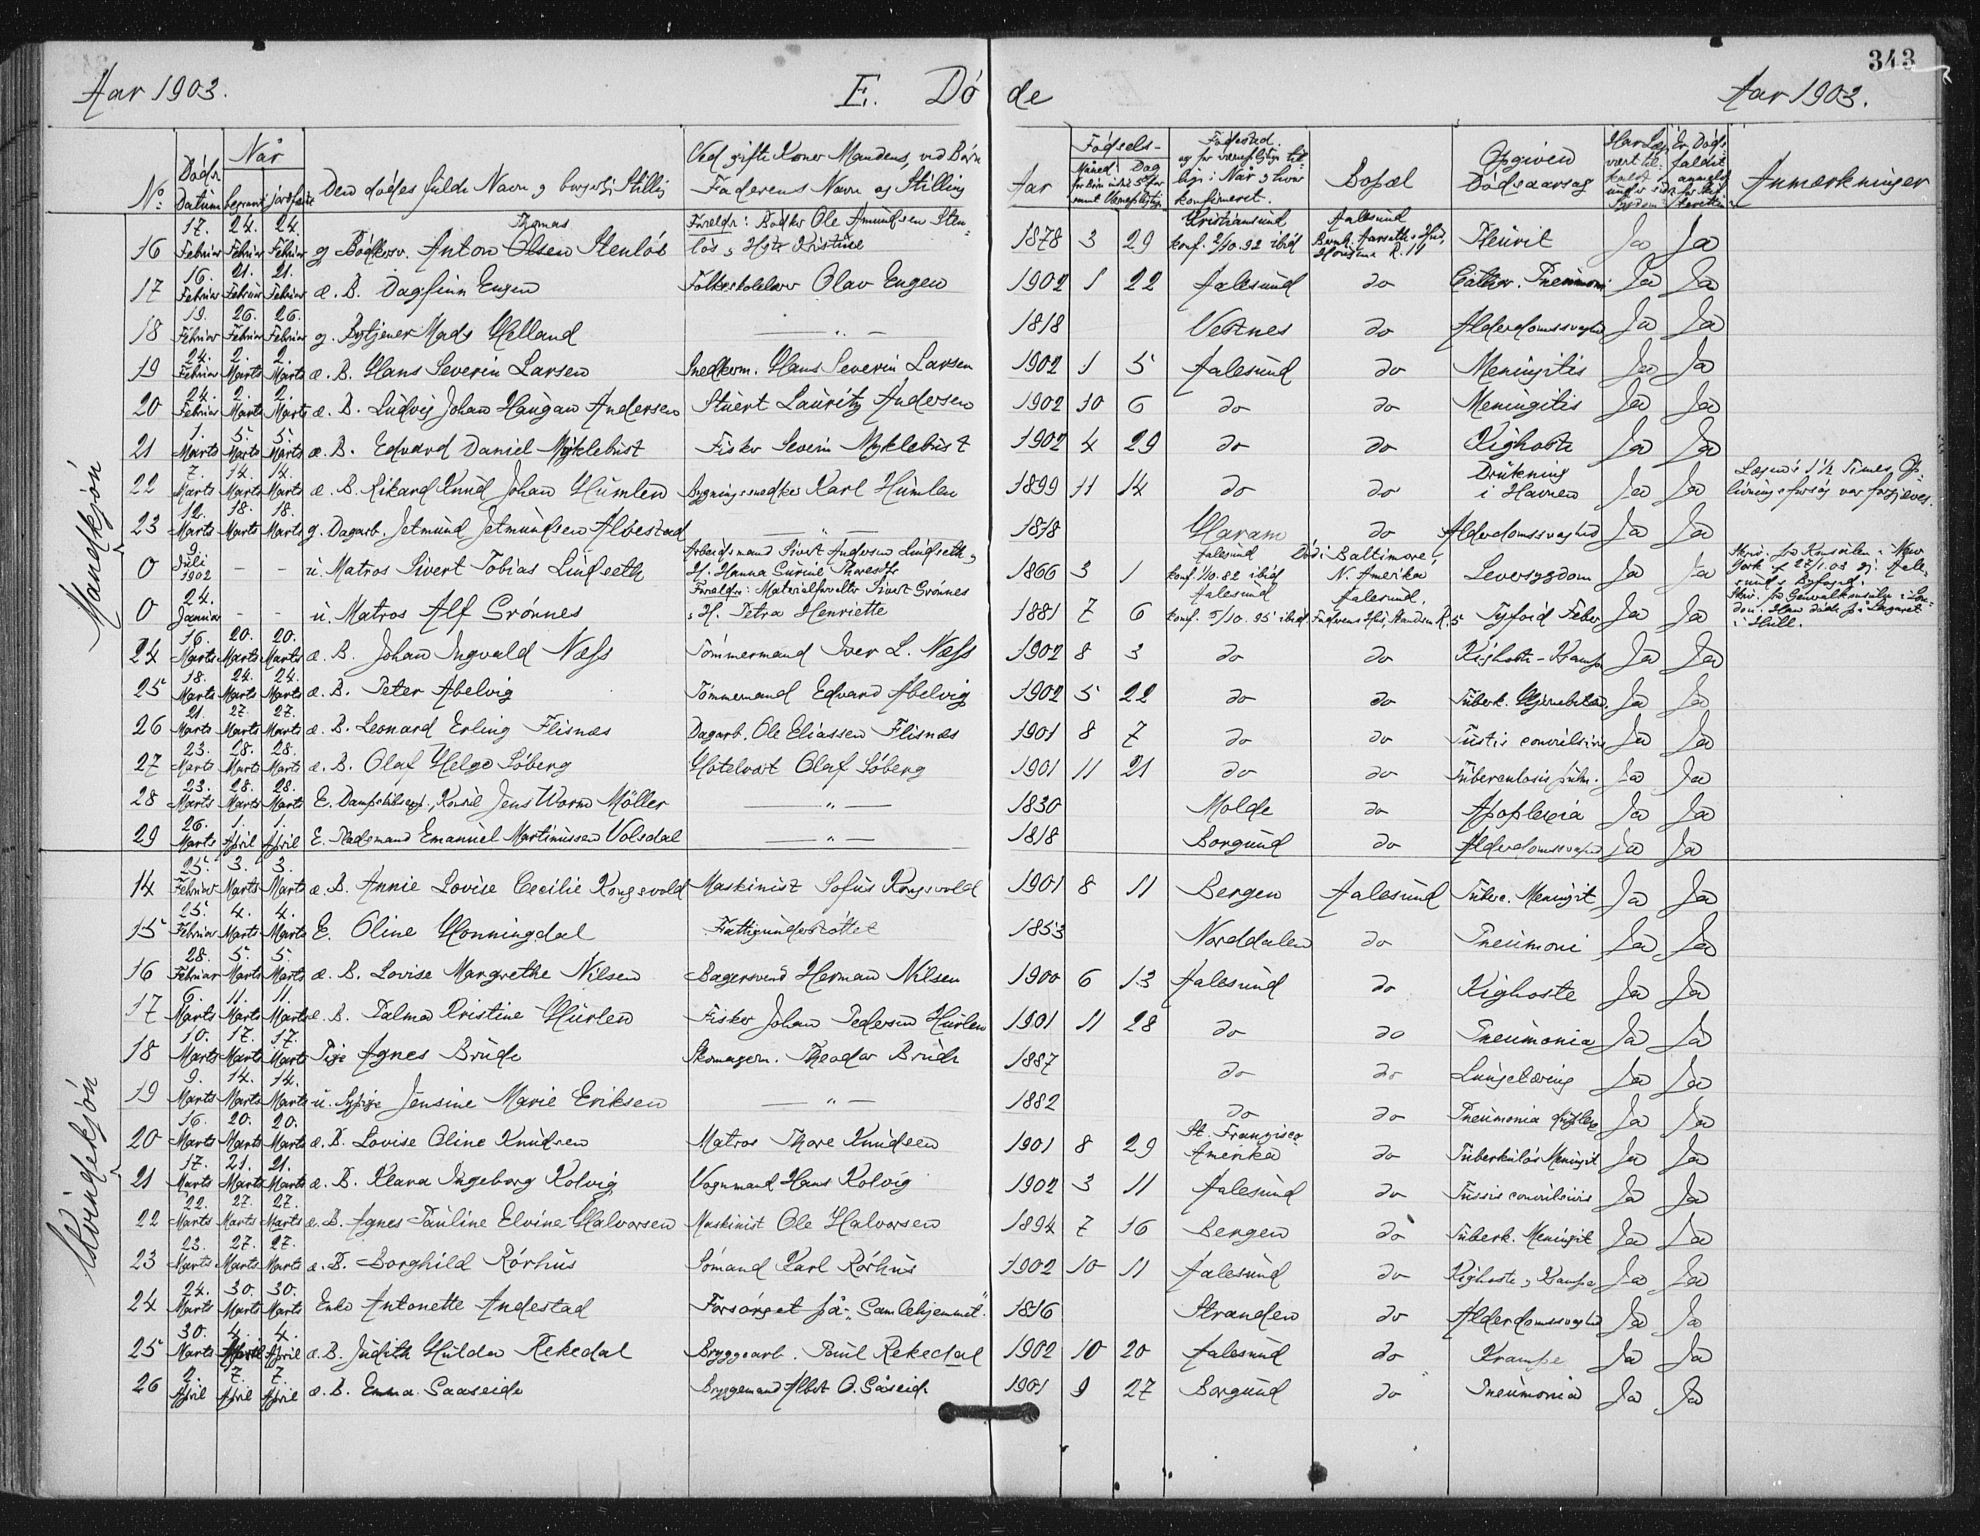 343
Aar 1903. E. Döde Aar 1903.
No. Döds Datum Når begravet jordfæstet Den dødes fulde Navn og borgerlige Stilling Ved gifte Koner Mandens, ved Børn Faderens Navn og Stilling Aar Fødsels- Måned Dag Fødested Bopæl Opgiven Dødsaarsag Anmærkninger
Mandkjön
16 17. Februar 24. Februar 24. Februar g. Bödkersv. Anton Thomas Olsen Stenlös Foreldr: Bödker Ole Amundsen Stenlös, Kristine 1878 3 29 Kristiansund konf. 2/10.92 ibid Aalesund Pleurit Ja Ja
17 16. Februar 21. Februar 21. Februar æ. B. Dagfinn Eugen Folkeskolelærer Olav Eugen 1902 1 22 Aalesund do Cathar. Pneumoni Ja Ja
18 19. Februar 26. Februar 26. Februar g. Bytjener Mads Helland — „ — 1818 Vestnes do Alderdomssvaghed Ja Ja
19 24. Februar 2. Marts 2. Marts æ. B. Hans Severin Larsen Snedkerm. Hans Severin Larsen 1902 1 5 Aalesund do Meningitis Ja Ja
20 24. Februar 2. Marts 2. Marts æ. B. Ludvig Johan Haugan Andersen Stuert Lauritz Andersen 1902 10 6 do do Meningitis Ja Ja
21 1. Marts 5. Marts 5. Marts æ. B. Edvard Daniel Myklebust Fisker Severin Myklebust 1902 4 29 do do Kighoste Ja Ja
22 7. Marts 14. Marts 14. Marts æ. B. Rikard Knud Johan Humlen Bygningssnedker Karl Humlen 1899 11 14 do do Drukning i Havnen Ja Ja Lægen i 1½ Times Oplivningsforsøg var forgjæves.
23 12. Marts 18. Marts 18. Marts g. Dagarb. Jetmund Jetmundsen Alvestad — „ — 1818 Haram do Alderdomssvaghed Ja Ja
0 9. Juli 1902 - - u. Matros Sivert Tobias Lindseth Arbeidsmand Sivert Andersen Lindseth, H. Hanna Surine 1866 3 1 Aalesund konf. 1/10.82 ibid Död i Baltimore, N. Amerika Leversygdom Ja Ja Skriv. fra Konsulen i New York af 27/1.03 Aalesunds Byfoged.
0 24. Januar - - u. Matros Alf Grönnes Foreldr: Materialforvalter Sivert Grönnes, H. Petra Henriette 1881 7 6 Aalesund konf. 5/10.95 ibid Aalesund. Faderens Hus, Standsm. R. 5 Tyfoid Feber Ja Ja Skriv. fra Generalkonsulen i London. Han døde på Lazaret i Hull.
24 16. Marts 20. Marts 20. Marts æ. B. Johan Ingvald Næss Tömmermand Iver L. Næss 1902 8 3 do do Kighoste - Krampe Ja Ja
25 18. Marts 24. Marts 24. Marts æ. B. Peter Abelvig Tömmermand Edvard Abelvig 1902 5 22 do do Tuberk. Hjernebetænd. Ja Ja
26 21. Marts 27. Marts 27. Marts æ. B. Leonard Erling Flisnæs Dagarb. Ole Eliassen Flisnæs 1901 8 7 do do Tussis convulsiva Ja Ja
27 23. Marts 28. Marts 28. Marts æ. B. Olaf Helge Söberg Hotelvært Olaf Söberg 1901 11 21 do do Tuberculosis pulm. Ja Ja
28 23. Marts 28. Marts 28. Marts E. Dampskibsexp., Konsul Jens Worm Möller — „ — 1830 Molde do Apoplexia Ja Ja
29 26. Marts 1. April 1. April E. Pladsmand Emanuel Martinussen Volsdal — „ — 1818 Borgund do Alderdomssvaghed Ja Ja
Kvindekjön
14 25. Februar 3. Marts 3. Marts æ. B. Annie Lovise Cecilie Kongsvold Maskinist Sofus Kongsvold 1901 8 11 Bergen Aalesund Tuberc. Meningit Ja Ja
15 25. Februar 4. Marts 4. Marts E. Oline Honningdal Fattigunderstöttet 1853 Norddalen do Pneumoni Ja Ja
16 28. Februar 5. Marts 5. Marts æ. B. Lovise Margrethe Nilsen Bagersvend Herman Nilsen 1900 6 13 Aalesund do Kighoste Ja Ja
17 6. Marts 11. Marts 11. Marts æ. B. Palma Kristine Hurlen Fisker Johan Pedersen Hurlen 1901 11 28 do do Pneumonia Ja Ja
18 10. Marts 17. Marts 17. Marts Pige Agnes Brude Skomagerm. Theodor Brude 1887 do do Lungetæring Ja Ja
19 9. Marts 14. Marts 14. Marts u. Sypige Jensine Marie Eriksen — „ — 1882 do do Pneumonia duplex Ja Ja
20 16. Marts 20. Marts 20. Marts æ. B. Lovise Oline Knudsen Matros Thore Knudsen 1901 8 29 St. Francisco Amerika do Tuberkulös Meningit Ja Ja
21 17. Marts 21. Marts 21. Marts æ. B. Klara Ingeborg Kolvig Vognmand Hans Kolvig 1902 3 11 Aalesund do Tussis convulsivis Ja Ja
22 22. Marts 27. Marts 27. Marts æ. B. Agnes Pauline Elvine Halvorsen Maskinist Ole Halvorsen 1894 7 16 Bergen do Tuberk. Meningit Ja Ja
23 23. Marts 27. Marts 27. Marts æ. B. Borghild Rörhus Sömand Karl Rörhus 1902 10 11 Aalesund do Kighoste, Krampe Ja Ja
24 24. Marts 30. Marts 30. Marts Enke Antonette Andestad Forsörget på „Gamlehjemmet“. 1816 Stranden do Alderdomssvaghed Ja Ja
25 30. Marts 4. April 4. April æ. B. Judith Hulda Rekedal Bryggearb. Paul Rekedal 1902 10 20 Aalesund do Krampe Ja Ja
26 2. April 7. April 7. April æ. B. Emma Saaseide Bryggemand Albert O. Såseide 1901 9 27 Borgund do Pneumonia Ja Ja